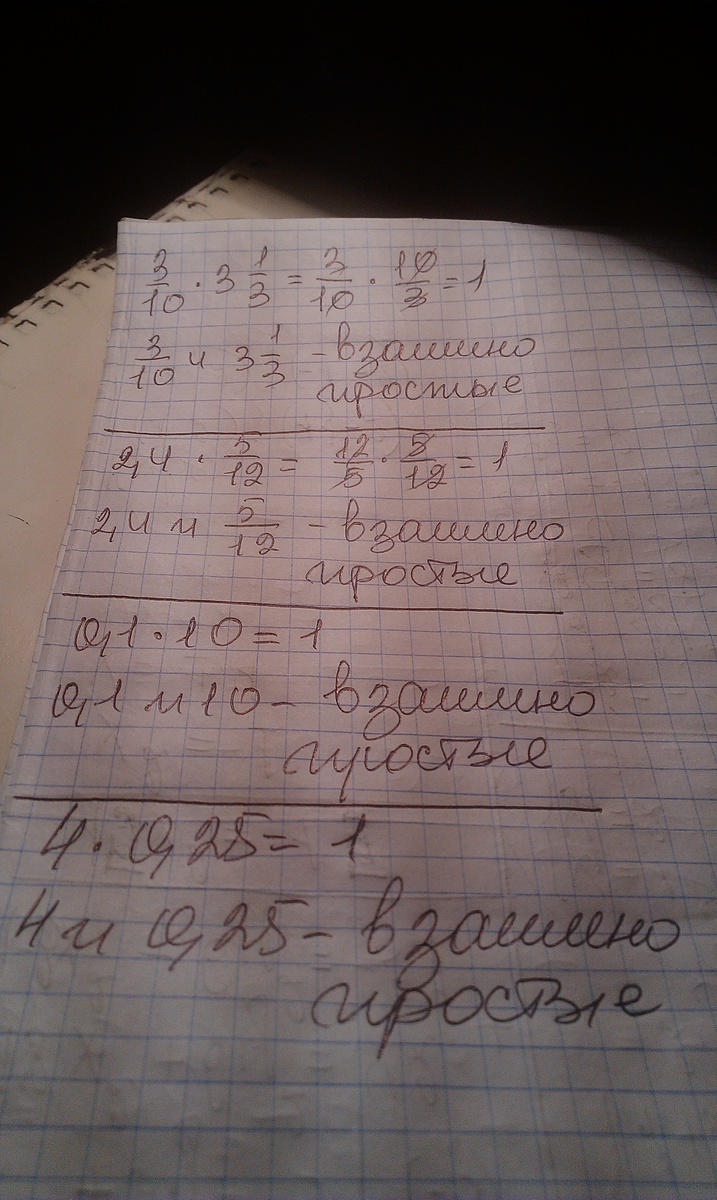 3/10 · 3 1/3 = 3/10 · 10/3 = 1
3/10 и 3 1/3 - взаимно
простые
2,4 · 5/12 = 12/5 · 5/12 = 1
2,4 и 5/12 - взаимно
простые
0,1 · 10 = 1
0,1 и 10 - взаимно
простые
4 · 0,25 = 1
4 и 0,25 - взаимно
простые